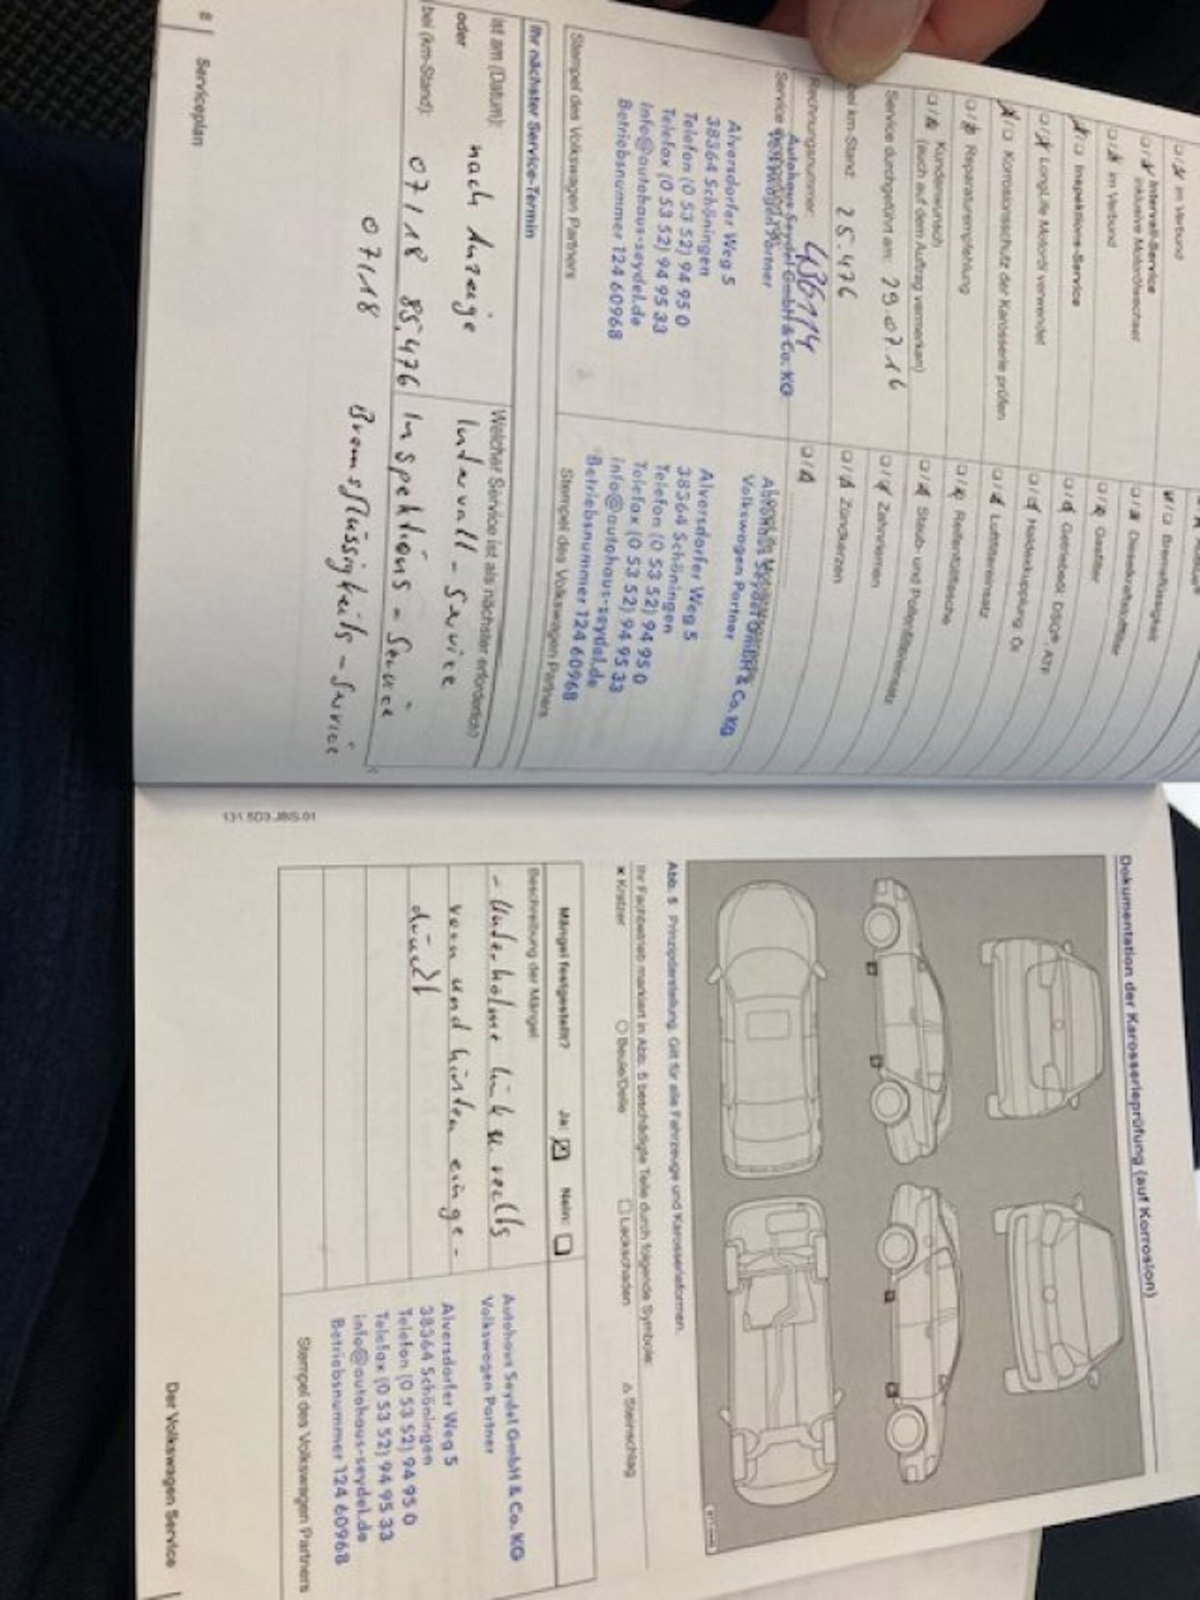 im Verbund
Intervall-Service
inklusive Motorölwechsel
im Verbund
Inspektions-Service
LongLife Motoröl verwendet
Korrosionsschutz der Karosserie prüfen
Reparaturempfehlung
Kundenwunsch
(auch auf dem Auftrag vermerken)
Service durchgeführt am: 29.07.16
bei km-Stand: 25.476
Rechnungsnummer: 436114
Autohaus Seydel GmbH & Co. KG
Volkswagen Partner
Alversdorfer Weg 5
38364 Schöningen
Telefon (0 53 52) 94 95 0
Telefax (0 53 52) 94 95 33
info@autohaus-seydel.de
Betriebsnummer 124 60968
Stempel des Volkswagen Partners
Bremsflüssigkeit
Dieselkraftstofffilter
Gasfilter
Getriebeöl: DSG®, ATF
Haldexkupplung: Öl
Luftfiltereinsatz
Reifenfüllflasche
Staub- und Pollenfiltereinsatz
Zahnriemen
Zündkerzen
Autohaus Seydel GmbH & Co. KG
Volkswagen Partner
Alversdorfer Weg 5
38364 Schöningen
Telefon (0 53 52) 94 95 0
Telefax (0 53 52) 94 95 33
info@autohaus-seydel.de
Betriebsnummer 124 60968
Stempel des Volkswagen Partners
Ihr nächster Service-Termin
ist am (Datum):
oder
bei (km-Stand):
Welcher Service ist als nächster erforderlich?
nach Anzeige Intervall-Service
07/18 85.476 Inspektions-Service
07/18 Bremsflüssigkeits-Service
8 Serviceplan
Dokumentation der Karosserieprüfung (auf Korrosion)
Abb. 5 Prinzipdarstellung. Gilt für alle Fahrzeuge und Karosserieformen.
Ihr Fachbetrieb markiert in Abb. 5 beschädigte Teile durch folgende Symbole:
× Kratzer ○ Beule/Delle □ Lackschaden △ Steinschlag
Mängel festgestellt? Ja: ☒ Nein: ☐
Beschreibung der Mängel:
- Unterholme links u. rechts
vorn und hinten einge-
drückt
Autohaus Seydel GmbH & Co. KG
Volkswagen Partner
Alversdorfer Weg 5
38364 Schöningen
Telefon (0 53 52) 94 95 0
Telefax (0 53 52) 94 95 33
info@autohaus-seydel.de
Betriebsnummer 124 60968
Stempel des Volkswagen Partners
131.5D3.JBS.01
Der Volkswagen Service